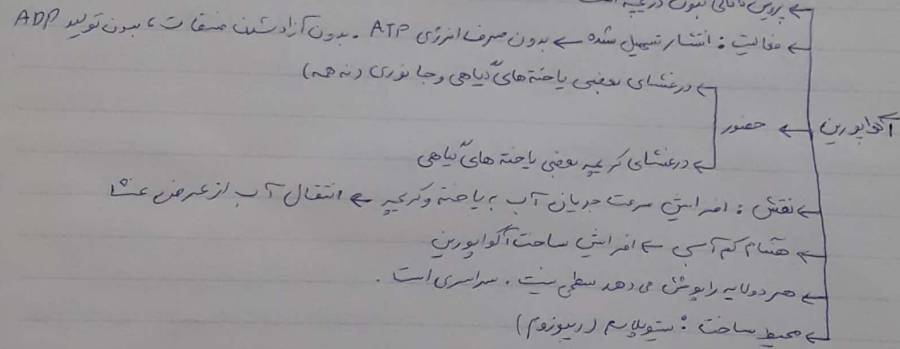 پروتئین کانالی بدون دریچه است
فعالیت: انتشار تسهیل شده ← بدون صرف انرژی ATP. بدون آزاد شدن فسفات، بدون تولید ADP
در غشای بعضی یاخته های گیاهی و جانوری (نه همه)
آکواپورین ← حضور
در غشای کریچه بعضی یاخته های گیاهی
نقش: افزایش سرعت جریان آب به یاخته و کریچه ← انتقال آب از عرض غشا
هنگام کم آبی ← افزایش ساخت آکواپورین
هر دو لایه را پوشش می دهد سطحی نیست. سراسری است.
محیط ساخت: سیتوپلاسم (ریبوزوم)